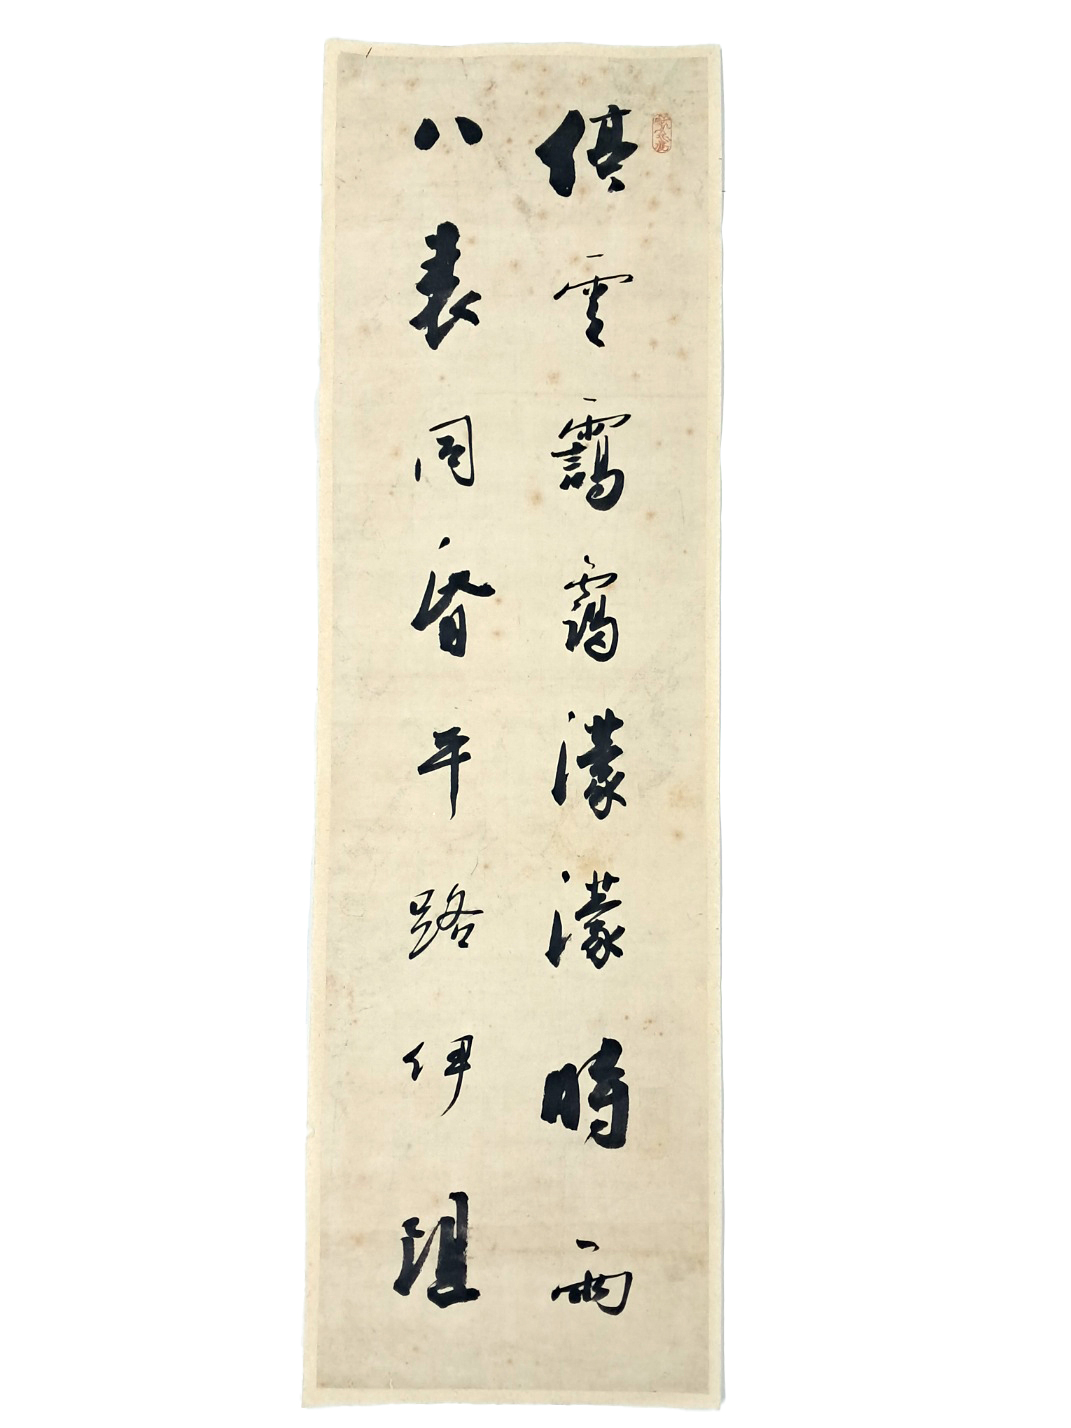 停雲靄靄濛濛時雨
八表同昏平路伊阻